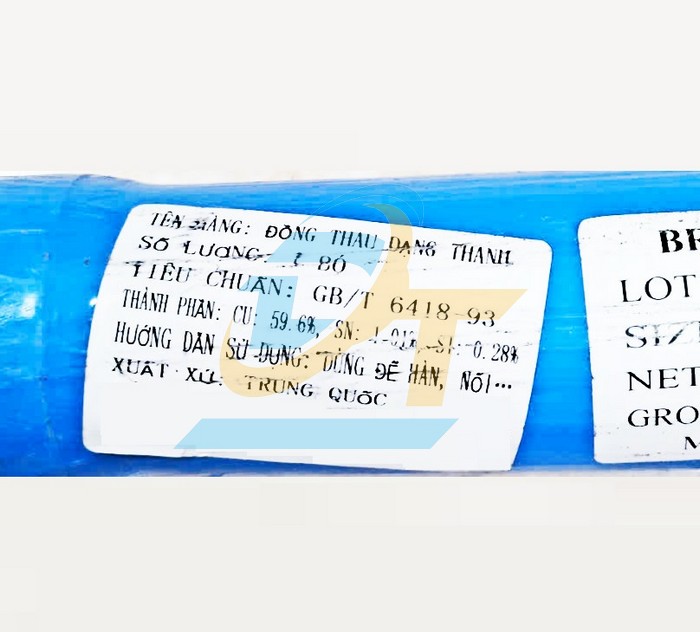 TÊN HÀNG: ĐỒNG THAU DẠNG THANH
SỐ LƯỢNG: 1 BÓ
TIÊU CHUẨN: GB/T 6418-93
THÀNH PHẦN: CU: 59.6%, SN: 1.01% SI: 0.28%
HƯỚNG DẪN SỬ DỤNG: DÙNG ĐỂ HÀN, NỐI...
XUẤT XỨ: TRUNG QUỐC
BR
LOT
SIZ
NET
GRO
M